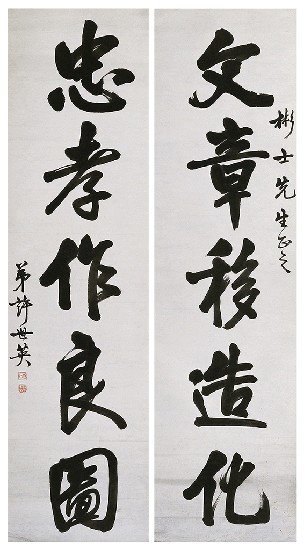 文章移造化
彬士先生正之
忠孝作良圖
弟許世英